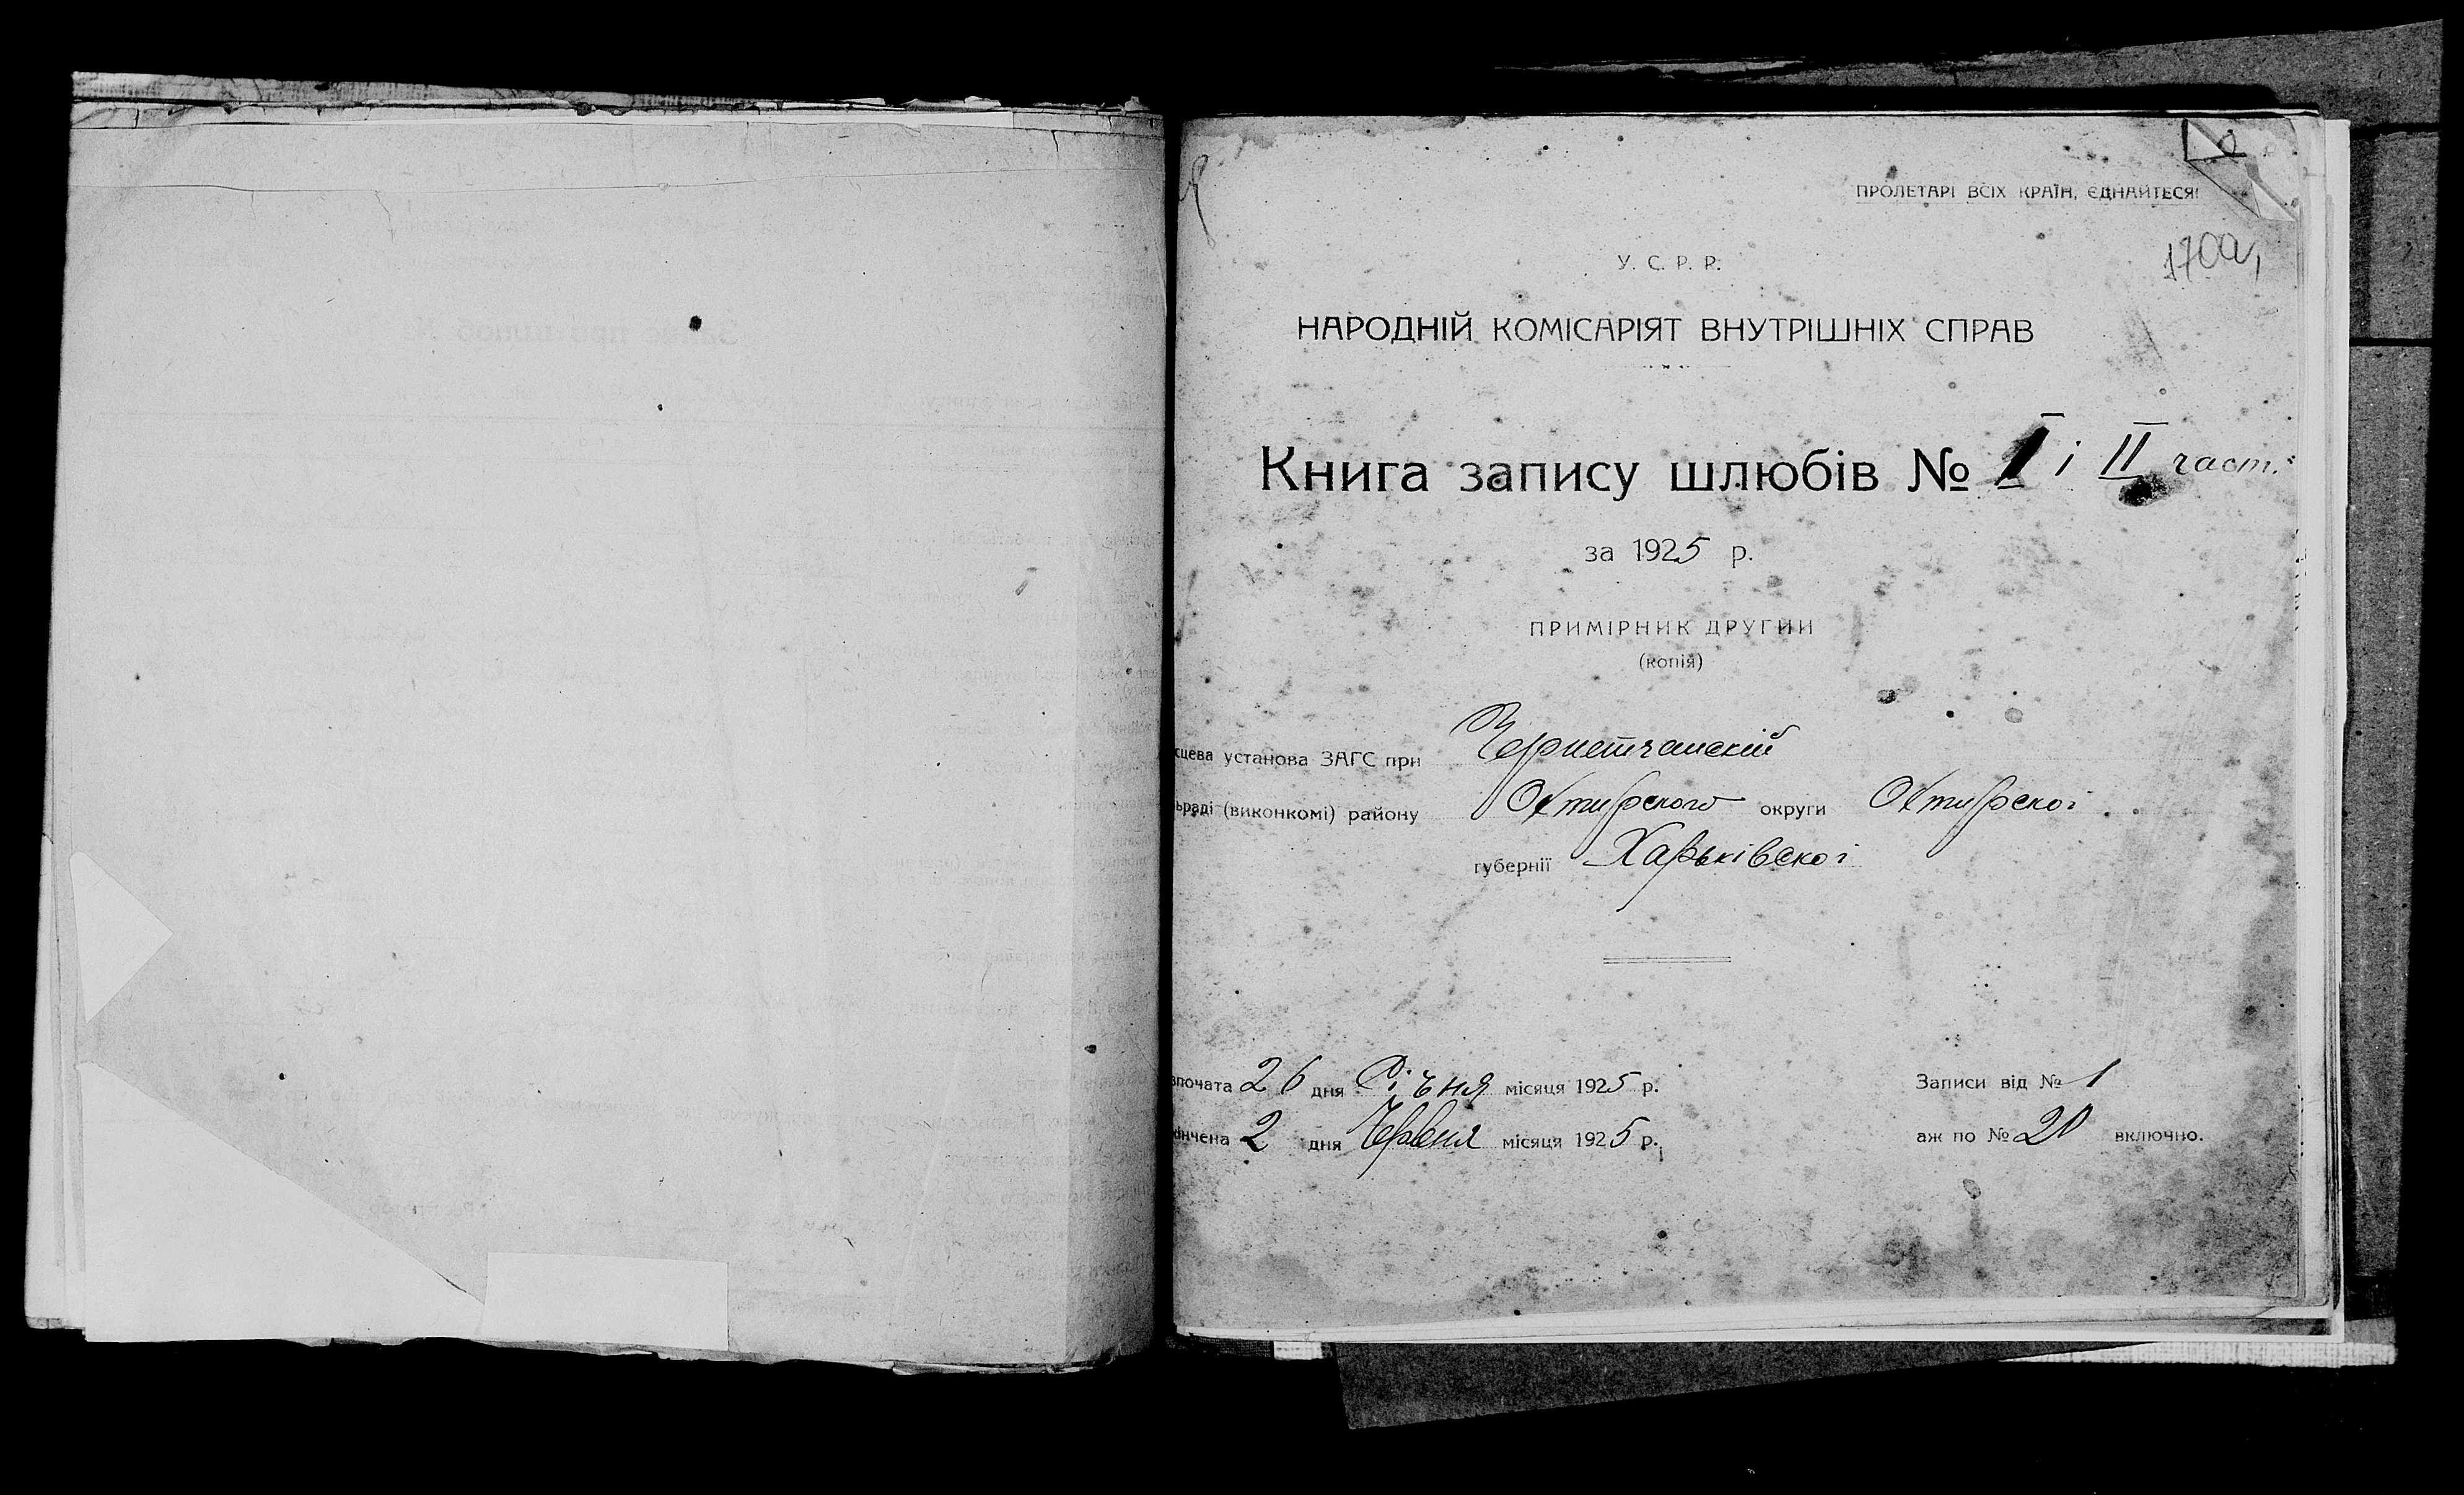 ПРОЛЕТАРІ ВСІХ КРАЇН, ЄДНАЙТЕСЯ!
170а,
У. С. Р. Р.
НАРОДНІЙ КОМІСАРІЯТ ВНУТРІШНІХ СПРАВ
Книга запису шлюбів № I і II част.
за 1925 р.
ПРИМІРНИК ДРУГИЙ
(копія)
сцева установа ЗАГС при
ьраді (виконкомі) району Охтирского округи Охтирскоі
губернії Харьківскоі
зпочата 26 дня Січня місяця 1925 р. Записи від № 1
інчена 2 дня Червня місяця 1925 р. аж по № 20 включно.